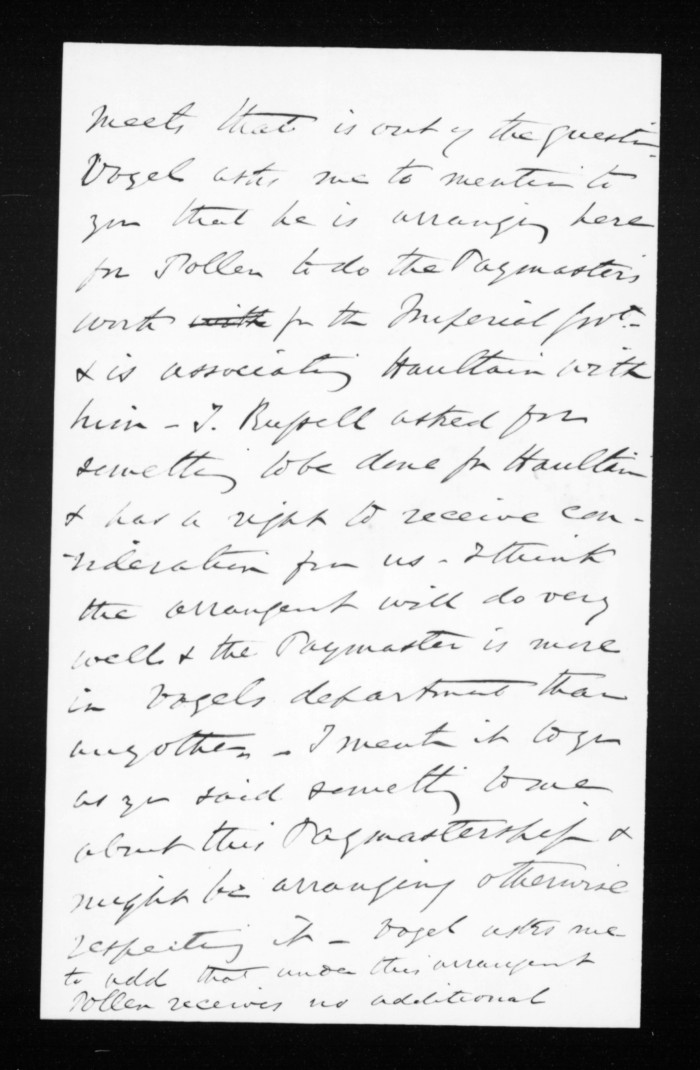 meets that is out of the questn
Vogel asks me to mention to
you that he is arranging here
for Pollen to do the Paymasters
work with for the Imperial Govt.
& is associating Haultain with
him - T. Russell asked for
something to be done for Haultain
& has a right to receive con-
sideration from us - I think
the arrangent will do very
well & the Paymaster is more
in Vogels department than
any other - I mentn it to you
as you said something to me
about this Paymastership &
might be arranging otherwise
respecting it - Vogel asks me
to add that under this arrangent
Pollen receives no additional